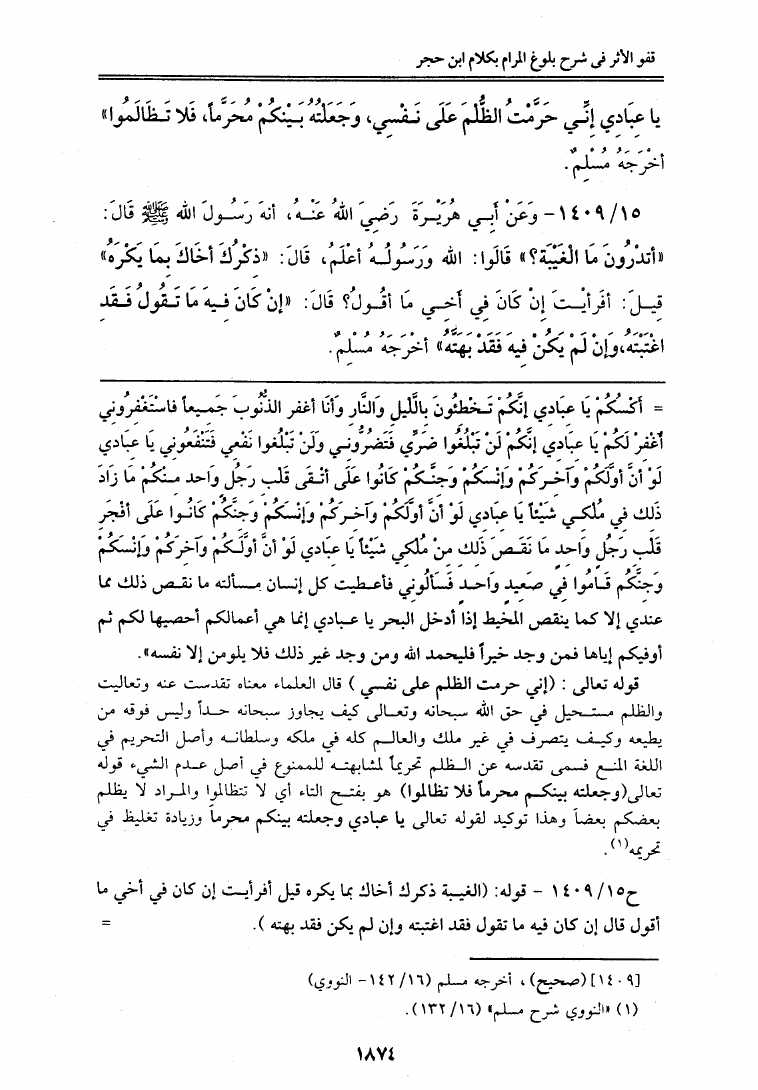 قفو الأثر في شرح بلوغ المرام بكلام ابن حجر
يا عِبَادِي إِنِّي حَرَّمْتُ الظُّلْمَ عَلَى نَفْسِي، وَجَعَلْتُهُ بَيْنَكُمْ مُحَرَّماً، فَلا تَظَالَمُوا»
أَخْرَجَهُ مُسْلِمٌ.
١٤٠٩/١٥- وَعَنْ أَبِي هُرَيْرَةَ رَضِيَ اللهُ عَنْهُ، أنهَ رَسُولَ الله ﷺ قَالَ:
«أَتَدْرُونَ مَا الْغَيْبَةُ؟» قَالُوا: الله وَرَسُولُهُ أَعْلَمُ، قَالَ: «ذِكْرُكَ أَخَاكَ بِمَا يَكْرَهُ»
قِيلَ: أَفَرَأَيْتَ إِنْ كَانَ فِي أَخِي مَا أَقُولُ؟ قَالَ: «إِنْ كَانَ فِيهِ مَا تَقُولُ فَقَدِ
اغْتَبْتَهُ،وَإِنْ لَمْ يَكُنْ فِيهِ فَقَدْ بَهَتَّهُ» أَخْرَجَهُ مُسْلِمٌ.
= أَكْسُكُمْ يَا عِبَادِي إِنَّكُمْ تَخْطِئُونَ بِاللَّيلِ وَالنَّارِ وَأَنَا أغفر الذُّنُوبَ جَمِيعاً فَاسْتَغْفِرُونِي
أغْفِرْ لَكُمْ يَا عِبَادِي إِنَّكُمْ لَنْ تَبْلُغُوا ضَرِّي فَتَضُرُّونِي وَلَنْ تَبْلُغوا نَفْعِي فَتَنْفَعُونِي يَا عِبَادِي
لَوْ أَنَّ أَوَّلَكُمْ وَآخِرَكُمْ وَإِنْسَكُمْ وَجِنَّكُمْ كَانُوا عَلَى أَتْقَى قَلْبِ رَجُلٍ وَاحد مِنْكُمْ مَا زَادَ
ذَلِكَ فِي مُلْكِي شَيْئاً يَا عِبَادِي لَوْ أَنَّ أَوَّلَكُمْ وَآخِرَكُمْ وَإِنْسَكُمْ وَجِنَّكُمْ كَانُوا عَلَى أَفْجَرِ
قَلْبِ رَجُلٍ وَاحِدٍ مَا نَقَصَ ذَلِكَ مِنْ مُلْكِي شَيْئاً يَا عِبَادِي لَوْ أَنَّ أَوَّلَكُمْ وَآخِرَكُمْ وَإِنْسِكُمْ
وَجِنَّكُمْ قَامُوا فِي صَعِيدٍ وَاحِدٍ فَسَأَلُونِي فأعطيت كل إنسان مسألته ما نقص ذلك مما
عندي إلا كما ينقص المخيط إذا أدخل البحر يا عبادي إنما هي أعمالكم أحصيها لكم ثم
أوفيكم إياها فمن وجد خيراً فليحمد الله ومن وجد غير ذلك فلا يلومن إلا نفسه».
قوله تعالى : (إني حرمت الظلم على نفسي ) قال العلماء معناه تقدست عنه وتعاليت
والظلم مستحيل في حق الله سبحانه وتعالى كيف يجاوز سبحانه حداً وليس فوقه من
يطيعه وكيف يتصرف في غير ملك والعالم كله في ملكه وسلطانه وأصل التحريم في
اللغة المنع فسمى تقدسه عن الظلم تحريماً لمشابهته للممنوع في أصل عدم الشيء قوله
تعالى(وجعلته بينكم محرماً فلا تظالموا) هو بفتح التاء أي لا تتظالموا والمراد لا يظلم
بعضكم بعضاً وهذا توكيد لقوله تعالى يا عبادي وجعلته بينكم محرماً وزيادة تغليظ في
تحريمه(١).
ح١٤٠٩/١٥ - قوله: (الغيبة ذكرك أخاك بما يكره قيل أفرأيت إن كان في أخي ما
أقول قال إن كان فيه ما تقول فقد اغتبته وإن لم يكن فقد بهته ).  =
[١٤٠٩] (صحيح)، أخرجه مسلم (١٤٢/١٦- النووي)
(١) «النووي شرح مسلم» (١٣٢/١٦).
١٨٧٤